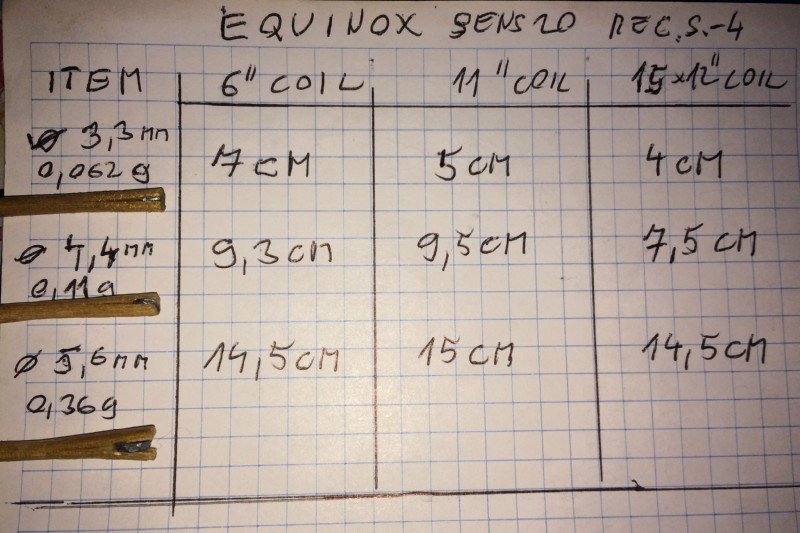 EQUINOX SENS20 REC.S.-4
ITEM 6" COIL 11" COIL 15x12" COIL
ø 3,3mm
0,062g 7 CM 5 CM 4 CM
ø 4,4mm 9,3 CM 9,5 CM 7,5 CM
0,11g
ø 5,6mm 14,5 CM 15 CM 14,5 CM
0,36g